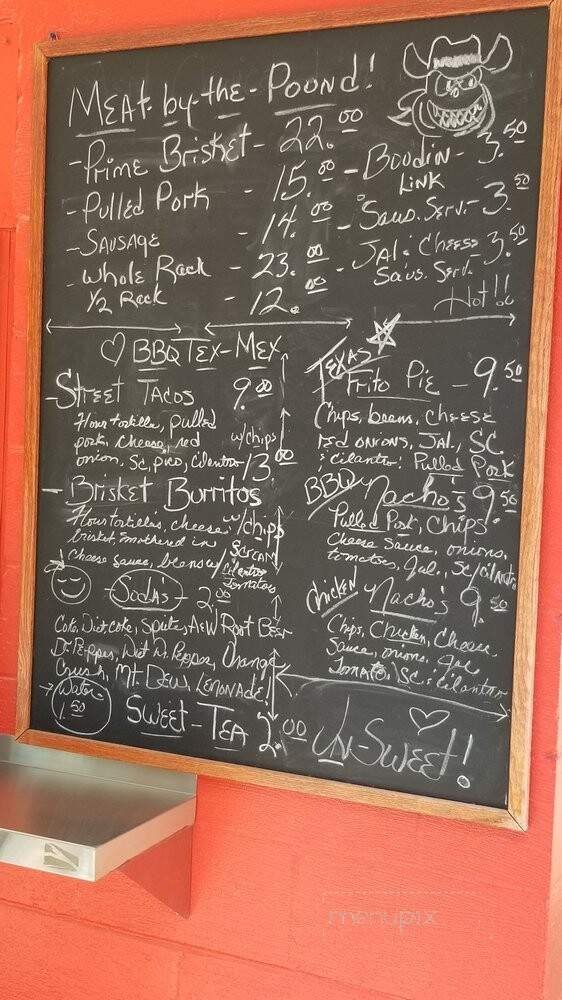 MEAT-by-the-POUND!
- Prime Brisket - 22.00
- Pulled Pork - 15.00
- SAUSAGE - 14.00
- Whole Rack - 23.00
1/2 Rack - 12.00
- Boudin - 3.50
Link
- Saus. Serv. - 3.50
- JAL. Cheese - 3.50
Saus. Serv.
Hot!!
BBQ TEX-MEX
- Street Tacos 9.00
flour tortilla, pulled
pork, cheese, red w/chips
onion, SC, pico, cilantro
- Brisket Burritos 13.00
flour tortillas, cheese, w/chips
brisket, smothered in
cheese sauce, beans w/
S CREAM
cilantro
tomatoes
- Soda's - 2.00
Coke, Diet Coke, Sprite, A&W Root Beer
Dr. Pepper, Diet Dr. Pepper, Orange
Crush, Mt. Dew, LEMONADE!
Water
1.50
SWEET-TEA 2.00
TEXAS
Frito Pie - 9.50
Chips, beans, cheese
red onions, JAL, SC
& cilantro! Pulled Pork
BBQ Nacho's 9.50
Pulled Pork, Chips
Cheese Sauce, onions,
tomatoes, Jal., SC/cilantro
Chicken Nacho's 9.50
Chips, Chicken, Cheese
Sauce, onions, Jal
Tomato, SC & cilantro
UN-SWEET!
menupix